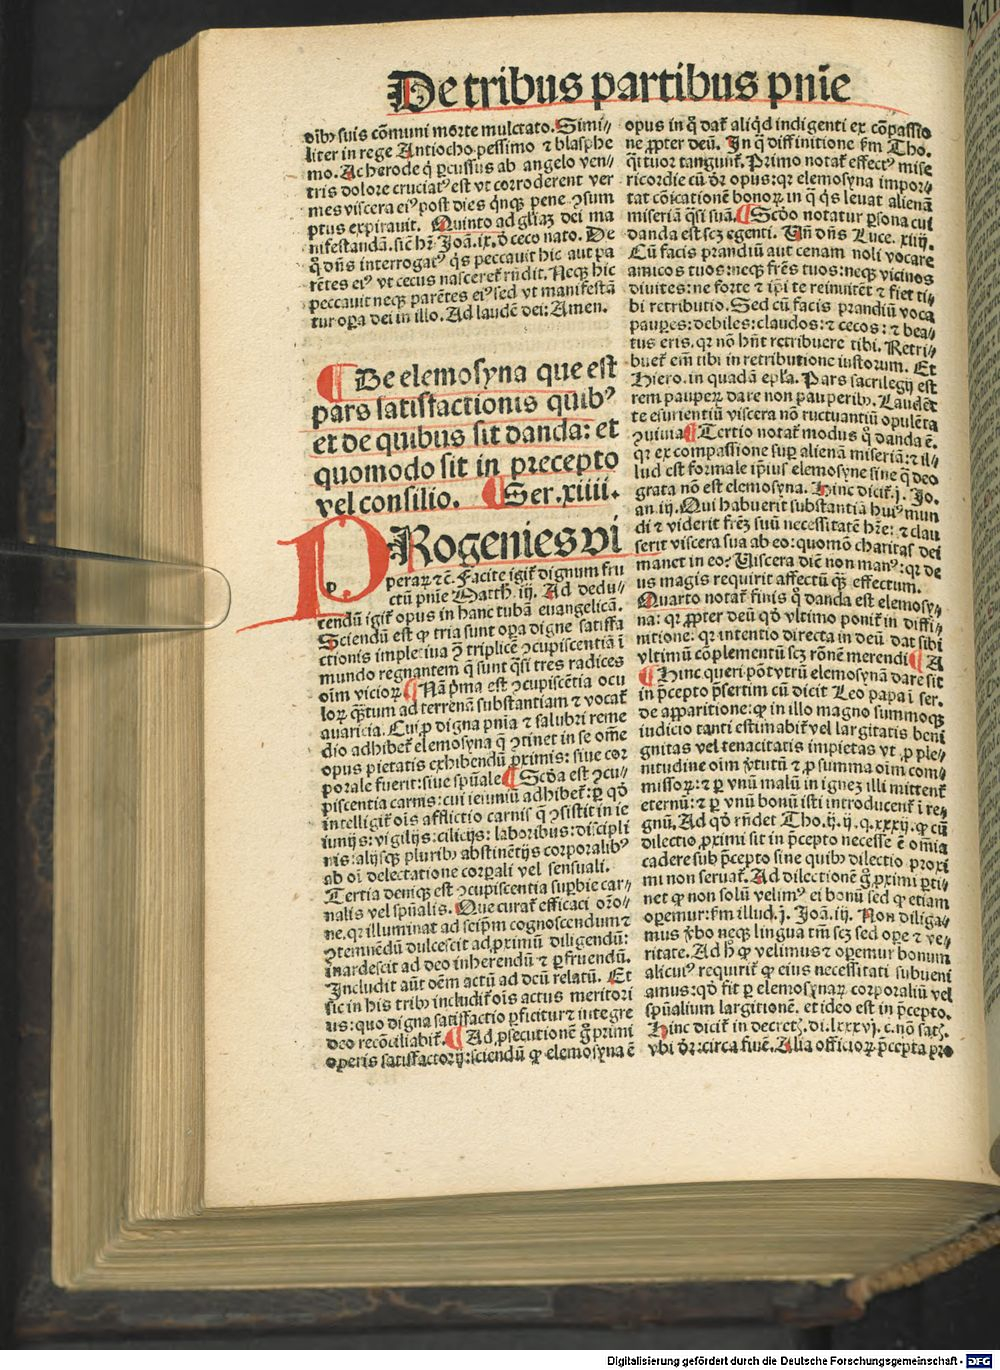 De tribus partibus pnie
dibꝰ suis cōmuni morte mulctato. Simi⸗
liter in rege Antiocho pessimo ⁊ blasphe
mo. Ac herode q̄ ꝑcussus ab angelo ven⸗
tris dolore cruciatꝰ est vt corroderent ver
mes viscera eiꝰ post dies qͥnqꝫ pene ꝯsum
ptus expirauit. Quinto ad gl̄iaꝫ dei ma
nifestandā. sic̄ hr̄ Joā.ix. ō ceco nato. De
q̄ dn̄s interrogatꝰ qͥs peccauit hic aut pa
rētes eiꝰ vt cecus nasceret̄ rn̄dit. Neqꝫ hic
peccauit neqꝫ parētes eiꝰ sed vt manifestā
tur oꝑa dei in illo. Ad laudē dei: Amen.
¶ De elemosyna que est
pars satisfactionis quibꝰ
et de quibus sit danda: et
quomodo sit in precepto
vel consilio. ¶ Ser.xiiii.
PRogenies vi
peraꝝ ⁊c̄. Facite igit̄ dignum fru
ctū pnie Matth. iij. Ad dedu⸗
cendū igit̄ opus in hanc tubā euangelicā.
Sciendū est ꝙ tria sunt oꝑa digne satisfa
ctionis impletiua ꝫ triplicē ꝯcupiscentiā ī
mundo regnantem q̄ sunt qͣsi tres radices
oīm vicioꝝ ¶ Nā pͥma est ꝯcupiscētia ocu
loꝝ qͣꝫtum ad terrenā substantiam ⁊ vocat̄
auaricia. Cui ꝓ digna pnia ⁊ salubri reme
dio adhibet̄ elemosyna q̄ ꝯtinet in se om̄e
opus pietatis exhibendū ꝓximis: siue cor
porale fuerit: siue spūale ¶ Scd̄a est ꝯcu⸗
piscentia carnis: cui ieiuniū adhibet̄: ꝑ qd̄
intelligit̄ oīs afflictio carnis q̄ ꝯsistit in ie
iunijs: vigilijs: cilicijs: laboribus: discipli
nis: alijsqꝫ pluribꝰ abstinētijs corporalibꝰ
ab oī delectatione corꝑali vel sensuali.
Tertia deniqꝫ est ꝯcupiscentia suꝑbie car⸗
nalis vel spūalis. Que curat̄ efficaci or̄o⸗
ne. qꝛ illuminat ad seip̄m cognoscendum ⁊
ꝯtemnēdū dulcescit ad ꝓximū diligendū:
inardescit ad deo inherendū ⁊ ꝑfruendū.
Includit aūt oēm actū ad deū relatū. Et
sic in his tribꝰ includit̄ oīs actus meritori
us: quo digna satisfactio ꝑficitur ⁊ integre
deo recōciliabit̄. ¶ Ad ꝓsecutionē g̊ primi
operis satisfactorij: sciendū ꝙ elemosyna ē
opus in q̄ dat̄ aliqͥd indigenti ex cōpassio
ne ꝓpter deū. In q̄ diffinitione ẜm Tho.
qͣttuor tangunt̄. Primo notat̄ effectꝰ mise
ricordie cū dr̄ opus: qꝛ elemosyna impor⸗
tat cōicationē bonoꝝ in q̄ qͥs leuat alienā
miseriā qͣsi suā. ¶ Scd̄o notatur ꝑsona cui
danda est scꝫ egenti. Un̄ dn̄s Luce. xiiij.
Cū facis prandiū aut cenam noli vocare
amicos tuos: neqꝫ fr̄es tuos: neqꝫ vicinos
diuites: ne forte ⁊ ip̄i te reinuitēt ⁊ fiet ti⸗
bi retributio. Sed cū facis prandiū voca
pauꝑes: debiles: claudos: ⁊ cecos: ⁊ bea⸗
tus eris. qꝛ nō hn̄t retribuere tibi. Retri⸗
buet̄ em̄ tibi in retributione iustorum. Et
Hiero. in quadā epl̄a. Pars sacrilegij est
rem pauꝑeꝝ dare non pauꝑeribꝰ. Laudēt
te esurientiū viscera nō ructuantiū opulēta
ꝯuiuia ¶ Tertio notat̄ modus q̊ danda ē.
qꝛ ex compassione suꝑ alienam miseriā: ⁊ il⸗
lud est formale ip̄ius elemosyne sine q̄ deo
grata nō est elemosyna. Hinc dicit̄. j. Jo.
an. iij. Qui habuerit substantiā huiꝰ mun
di ⁊ viderit fr̄eꝫ suū necessitatē hr̄e: ⁊ clau
serit viscera sua ab eo: quomō charitas dei
manet in eo? Viscera dicn̄ non manꝰ: qꝛ de
us magis requirit affectū qͣꝫ effectum.
Quarto notat̄ finis q̊ danda est elemosy⸗
na: qꝛ ꝓpter deū qd̄ vltimo ponit̄ in diffi⸗
nitione. qꝛ intentio directa in deū dat sibi
vltimū cōplementū scꝫ rōnē merendi ¶ A
¶ Hinc queri pōt vtrū elemosynā dare sit
in p̄cepto p̄sertim cū dicit Leo papa ī ser.
de apparitione: ꝙ in illo magno summoqꝫ
iudicio tanti estimabit̄ vel largitatis beni
gnitas vel tenacitatis impietas vt ꝓ ple⸗
nitudine oīm v̄tutū ⁊ ꝓ summa oīm com⸗
missoꝝ: ⁊ ꝑ vnū malū in igneꝫ illi mittent̄
eternū: ⁊ ꝑ vnū bonū isti introducent̄ ī re⸗
gnū. Ad qd̄ rn̄det Tho. ij. ij. q. xxxij. ꝙ cū
dilectio ꝓximi sit in p̄cepto necesse ē om̄ia
cadere sub p̄cepto sine quibꝰ dilectio proxi
mi non seruat̄. Ad dilectionē g̊ ꝓximi ꝑti⸗
net ꝙ non solū velimꝰ ei bonū sed ꝙ etiam
oꝑemur: ẜm illud. j. Joā. iij. Non diliga⸗
mus v̄bo neqꝫ lingua tm̄ scꝫ sed oꝑe ⁊ ve⸗
ritate. Ad hͦ ꝙ velimus ⁊ oꝑemur bonum
alicuiꝰ requirit̄ ꝙ eius necessitati subueni
amus: qd̄ fit ꝑ elemosynaꝝ corporaliū vel
spūalium largitionē. et ideo est in p̄cepto.
Hinc dicit̄ in decret̄. di. lxxxvj. c. nō satꝫ.
vbi dr̄: circa finē. Alia officioꝝ p̄cepta pro
Digitalisierung gefördert durch die Deutsche Forschungsgemeinschaft - DFG